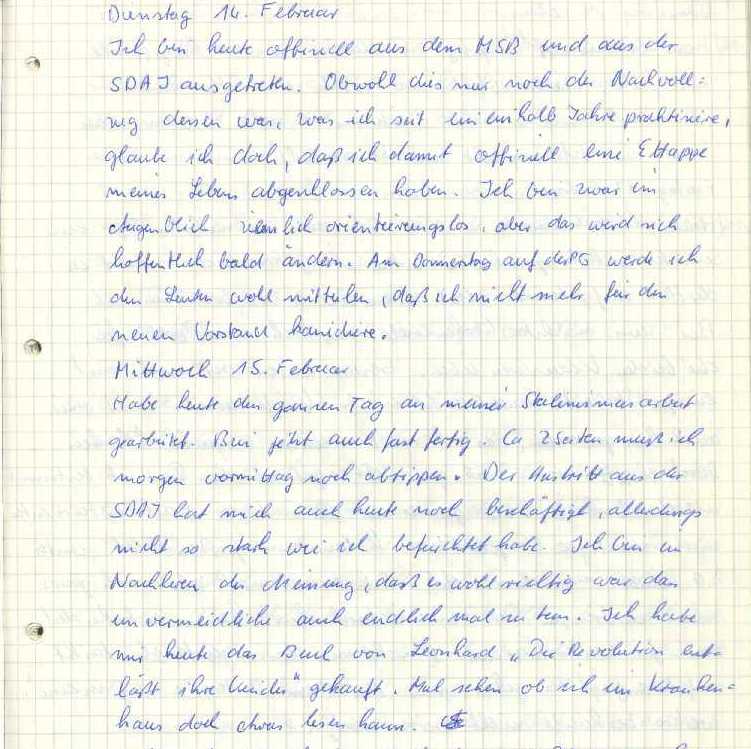 Dienstag 14. Februar
Ich bin heute offiziell aus dem MSB und aus der
SDAJ ausgetreten. Obwohl dies nur noch der Nachvoll=
zug dessen war, was ich seit eineinhalb Jahre praktiziere,
glaube ich doch, daß ich damit offiziell eine Ettappe
meines Lebens abgeschlossen haben. Ich bin zwar im
Augenblick ziemlich orientierungslos, aber das wird sich
hoffentlich bald ändern. Am Donnerstag auf der PG werde ich
den Leuten wohl mitteilen, daß ich nicht mehr für den
neuen Vorstand kanidiere.
Mittwoch 15. Februar
Habe heute den ganzen Tag an meiner Stalinismusarbeit
gearbeitet. Bin jetzt auch fast fertig. Ca 2 Seiten muß ich
morgen vormittag noch abtippen. Der Austritt aus der
SDAJ hat mich auch heute noch beschäftigt, allerdings
nicht so stark wie ich befürchtet habe. Ich bin im
Nachhinein der Meinung, daß es wohl richtig war das
unvermeidliche auch endlich mal zu tun. Ich habe
mir heute das Buch von Leonhard „Die Revolution ent=
läßt ihre Kinder" gekauft. Mal sehen ob ich im Kranken=
haus doch etwas lesen kann.